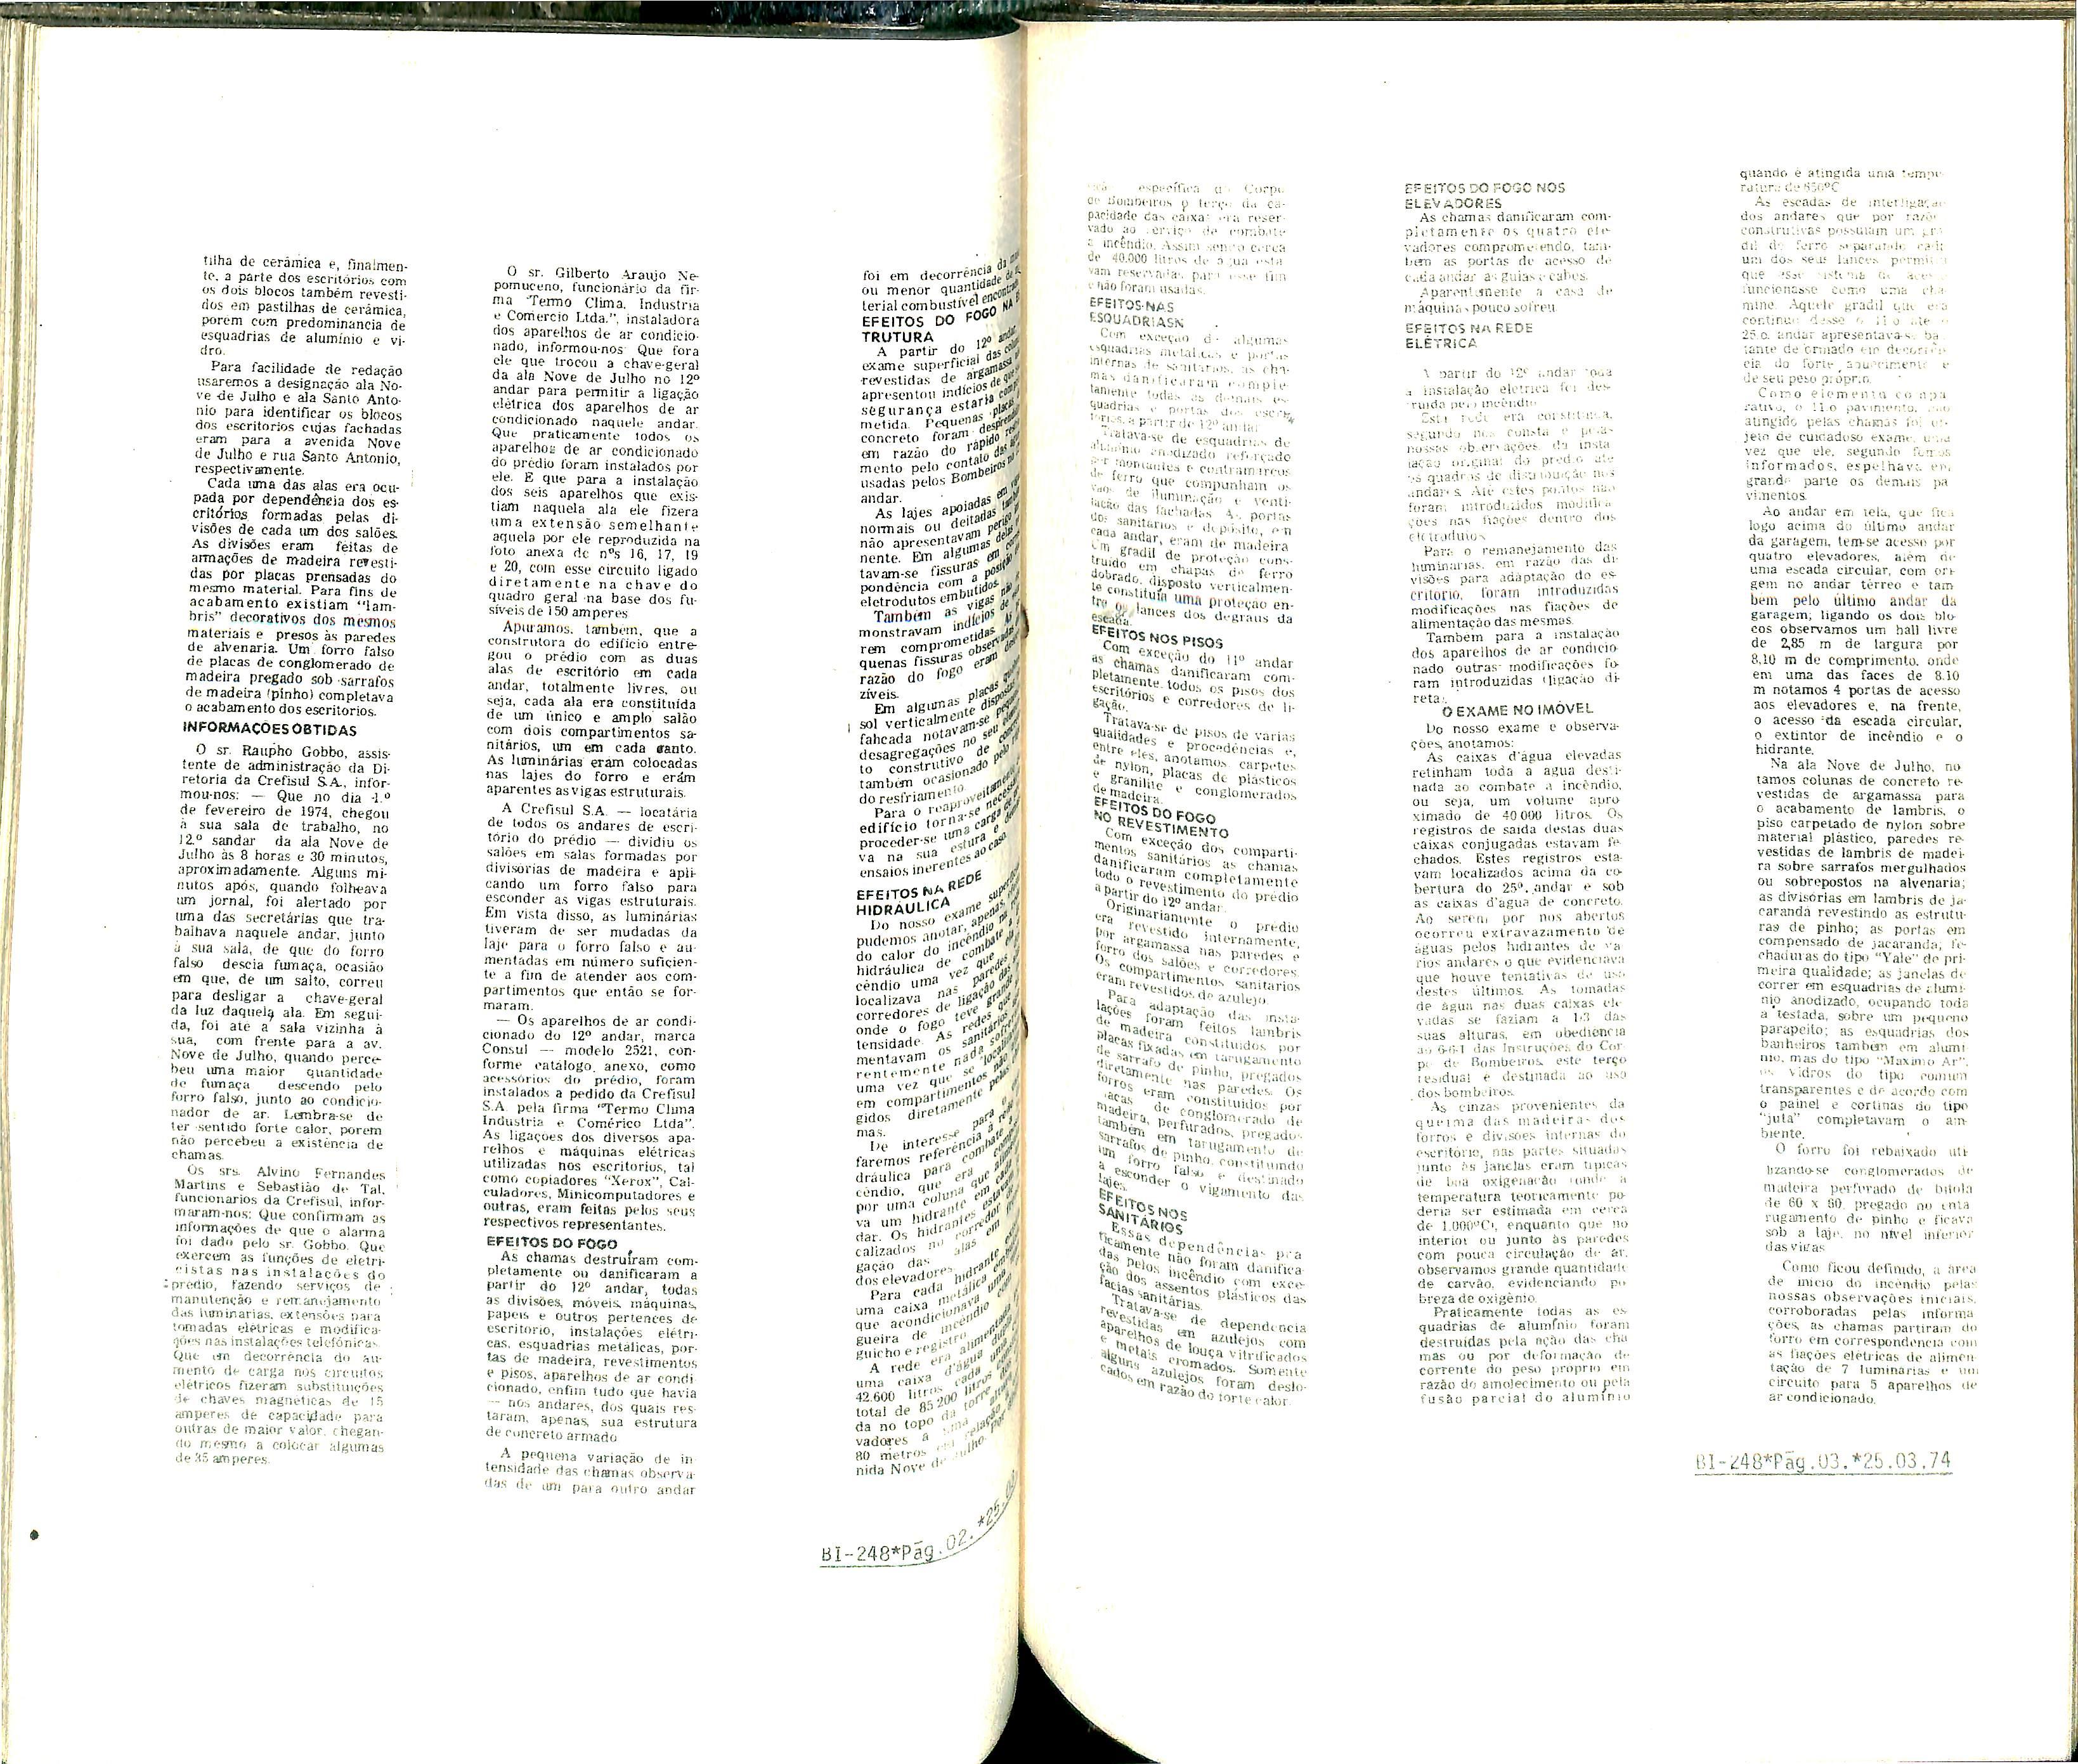 tilha de cerâmica e, finalmen-
te, a parte dos escritórios com
os dois blocos também revesti-
dos em pastilhas de cerâmica,
porem com predominancia de
esquadrias de alumínio e vi-
dro.
Para facilidade de redação
usaremos a designação ala No-
ve de Julho e ala Santo Anto-
nio para identificar os blocos
dos escritorios cujas fachadas
eram para a avenida Nove
de Julho e rua Santo Antonio,
respectivamente.
Cada uma das alas era ocu-
pada por dependência dos es-
critórios formadas pelas di-
visões de cada um dos salões.
As divisões eram feitas de
armações de madeira revesti-
das por placas prensadas do
mesmo material. Para fins de
acabamento existiam "lam-
bris" decorativos dos mesmos
materiais e presos às paredes
de alvenaria. Um forro falso
de placas de conglomerado de
madeira pregado sob sarrafos
de madeira (pinho) completava
o acabamento dos escritorios.
INFORMAÇOES OBTIDAS
O sr. Raupho Gobbo, assis-
tente de administração da Di-
retoria da Crefisul S.A., infor-
mou-nos: — Que no dia 1.º
de fevereiro de 1974, chegou
à sua sala de trabalho, no
12.º sandar da ala Nove de
Julho às 8 horas e 30 minutos,
aproximadamente. Alguns mi-
nutos após, quando folheava
um jornal, foi alertado por
uma das secretárias que tra-
balhava naquele andar, junto
à sua sala, de que do forro
falso descia fumaça, ocasião
em que, de um salto, correu
para desligar a chave-geral
da luz daquela ala. Em segui-
da, foi até a sala vizinha à
sua, com frente para a av.
Nove de Julho, quando perce-
beu uma maior quantidade
de fumaça descendo pelo
forro falso, junto ao condicio-
nador de ar. Lembra-se de
ter sentido forte calor, porem
não percebeu a existência de
chamas.
Os srs. Alvino Fernandes
Martins e Sebastião de Tal,
funcionarios da Crefisul, infor-
maram-nos: Que confirmam as
informações de que o alarma
foi dado pelo sr. Gobbo. Que
exercem às funções de eletri-
cistas nas instalações do
prédio, fazendo serviços de
manutenção e remanejamento
das luminarias, extensões para
tomadas elétricas e modifica-
ções nas instalações telefônicas.
Que em decorrência do au-
mento de carga nos circuitos
elétricos fizeram substituições
de chaves magneticas de 15
amperes de capacidade para
outras de maior valor, chegan-
do mesmo a colocar algumas
de 35 amperes.
O sr. Gilberto Araujo Ne-
pomuceno, funcionário da fir-
ma "Termo Clima, Industria
e Comercio Ltda.", instaladora
dos aparelhos de ar condicio-
nado, informou-nos: Que fora
ele que trocou a chave-geral
da ala Nove de Julho no 12º
andar para permitir a ligação
elétrica dos aparelhos de ar
condicionado naquele andar.
Que praticamente todos os
aparelhos de ar condicionado
do prédio foram instalados por
ele. E que para a instalação
dos seis aparelhos que exis-
tiam naquela ala ele fizera
uma extensão semelhante
aquela por ele reproduzida na
foto anexa de nºs 16, 17, 19
e 20, com esse circuito ligado
diretamente na chave do
quadro geral na base dos fu-
síveis de 150 amperes
Apuramos, também, que a
construtora do edifício entre-
gou o prédio com as duas
alas de escritório em cada
andar, totalmente livres, ou
seja, cada ala era constituída
de um único e amplo salão
com dois compartimentos sa-
nitários, um em cada canto.
As luminárias eram colocadas
nas lajes do forro e eram
aparentes as vigas estruturais.
A Crefisul S.A. — locatária
de todos os andares de escri-
tório do prédio — dividiu os
salões em salas formadas por
divisorias de madeira e apli-
cando um forro falso para
esconder as vigas estruturais.
Em vista disso, as luminárias
tiveram de ser mudadas da
laje para o forro falso e au-
mentadas em número suficien-
te a fim de atender aos com-
partimentos que então se for-
maram.
— Os aparelhos de ar condi-
cionado do 12º andar, marca
Consul — modelo 2521, con-
forme catálogo anexo, como
acessórios do prédio, foram
instalados a pedido da Crefisul
S.A. pela firma "Termo Clima
Industria e Comérico Ltda".
As ligações dos diversos apa-
relhos e máquinas elétricas
utilizadas nos escritorios, tal
como copiadores "Xerox", Cal-
culadores, Minicomputadores e
outras, eram feitas pelos seus
respectivos representantes.
EFEITOS DO FOGO
As chamas destruíram com-
pletamente ou danificaram a
partir do 12º andar, todas
as divisões, móveis, máquinas,
papeis e outros pertences de
escritorio, instalações elétri-
cas, esquadrias metálicas, por-
tas de madeira, revestimentos
e pisos, aparelhos de ar condi-
cionado, enfim tudo que havia
— nos andares, dos quais res-
taram, apenas, sua estrutura
de concreto armado
A pequena variação de in-
tensidade das chamas observa-
das de um para outro andar
foi em decorrência da
ou menor quantidade de
terial combustível
EFEITOS DO FOGO NA
TRUTURA
A partir do 12º andar,
exame superficial das
revestidas de argamassa
apresentou indícios de que
segurança estaria
metida. Pequenas placas
concreto foram
em razão do rápido
mento pelo contato das
usadas pelos Bombeiros
andar.
As lajes apoiadas em
normais ou deitadas
não apresentavam perigo
nente. Em algumas delas
tavam-se fissuras em
pondência com a posição
eletrodutos embutidos.
Também as vigas não
monstravam indícios de
rem comprometidas. As
quenas fissuras
razão do fogo eram
zíveis.
Em algumas placas
sol verticalmente
fahcada notavam-se
desagregações no seu
to construtivo de
também ocasionado pelo
do resfriamento.
Para o reaproveitamento
edifício torna-se
proceder-se uma carga de
va na sua estura e
ensaios inerentes ao caso.
EFEITOS NA REDE
HIDRÁULICA
Do nosso exame
pudemos anotar, apenas,
do calor do incêndio na
hidráulica de combate
cêndio uma vez que
localizava nas paredes
corredores de ligação das
onde o fogo teve grande
tensidade. As redes que
mentavam os sanitários
rentemente nada
uma vez que se
em compartimentos não
gidos diretamente pelas
mas.
De interesse para o
faremos referência a rede
dráulica para combate
cêndio, que era
por uma coluna que
va um hidrante em cada
dar. Os hidrantes estavam
calizados no corredor de
gação das alas em
dos elevadores.
Para cada hidrante
uma caixa metálica
que acondicionava uma
gueira de incêndio com
guicho e registro.
A rede era alimentada
uma caixa d'água
42.600 litros cada uma
total de 85 200 litros
da no topo da torre
vadores a uma altura
80 metros em relação
nida Nove de Julho. por
BI-248*Pãg.02.*25.
específica do Corpo
de Bombeiros o terço da ca-
pacidade das caixas era reser-
vado ao serviço de combate
a incêndio. Assim sendo cerca
de 40.000 litros de agua esta-
vam reservadas para esse fim
e não foram usadas.
EFEITOS NAS
ESQUADRIASN
Com exceção de algumas
esquadrias metálicas e portas
internas de sanitários, as cha-
mas danificaram comple-
tamente todas as demais es-
quadrias e portas dos escri-
tórios, a partir do 12º andar.
Tratava-se de esquadrias de
alumínio anodizado reforçado
por montantes e contramarcos
de ferro que compunham os
vãos de iluminação e venti-
lação das fachadas. As portas
dos sanitários e depósito, em
cada andar, eram de madeira
Um gradil de proteção cons-
truído em chapas de ferro
dobrado, disposto verticalmen-
te constituía uma proteção en-
tre os lances dos degraus da
escada.
EFEITOS NOS PISOS
Com exceção do 11º andar
as chamas danificaram com-
pletamente todos os pisos dos
escritórios e corredores de li-
gação.
Tratava-se de pisos de varias
qualidades e procedências e,
entre eles, anotamos, carpetes
de nylon, placas de plásticos
e granilite e conglomerados
de madeira.
EFEITOS DO FOGO
NO REVESTIMENTO
Com exceção dos comparti-
mentos sanitários as chamas
danificaram completamente
todo o revestimento do prédio
a partir do 12º andar.
Originariamente o predio
era revestido internamente,
por argamassa nas paredes e
forro dos salões e corredores.
Os compartimentos sanitarios
eram revestidos de azulejo.
Para adaptação das insta-
lações foram feitos lambris
de madeira constituidos por
placas fixadas em tarugamento
de sarrafo de pinho, pregados
diretamente nas paredes. Os
forros eram constituidos por
lacas de conglomerado de
madeira, perfurados, pregados
também em tarugamento de
sarrafos de pinho, constituindo
um forro falso e destinado
a esconder o vigamento das
lajes.
EFEITOS NOS
SANITÁRIOS
Essas dependências pra
ticamente não foram danifica-
das pelos incêndio com exce-
ção dos assentos plásticos das
facias sanitárias.
Tratava-se de dependencia
revestidas em azulejos com
aparelhos de louça vitrificados
e metais cromados. Somente
alguns azulejos foram deslo-
cados em razão do forte calor.
EFEITOS DO FOGO NOS
ELEVADORES
As chamas danificaram com-
pletamente os quatro ele-
vadores comprometendo, tam-
bém as portas de acesso de
cada andar as guias e cabos.
Aparentemente a casa de
máquinas pouco sofreu
EFEITOS NA REDE
ELÉTRICA
A partir do 12º andar toda
a instalação elétrica foi des-
truída pelo incêndio
Esta rede era constituída,
segundo nos consta e pelas
nossas observações, da insta
lação original do predio até
os quadros de distribuição nos
andares. Até estes pontos não
foram introduzidos modifica
ções nas fiações dentro dos
eletrodutos
Para o remanejamento das
luminárias, em razão das di
visões para adaptação do es-
critorio, foram introduzidas
modificações nas fiações de
alimentação das mesmas.
Também para a instalação
dos aparelhos de ar condicio
nado outras modificações fo-
ram introduzidas (ligação di-
reta).
O EXAME NO IMÓVEL
Do nosso exame e observa-
ções, anotamos:
As caixas d'água elevadas
retinham toda a agua desti-
nada ao combate a incêndio,
ou seja, um volume apro
ximado de 40 000 litros. Os
registros de saida destas duas
caixas conjugadas estavam fe
chados. Estes registros esta-
vam localizados acima da co-
bertura do 25º. andar e sob
as caixas d'agua de concreto.
Ao serem por nos abertos
ocorreu extravazamento de
águas pelos hidrantes de va
rios andares o que evidenciava
que houve tentativas de uso
destes últimos. As tomadas
de água nas duas caixas ele
vadas se faziam a 1/3 das
suas alturas, em obediência
ao 6-6-1 das Instruções do Cor
po de Bombeiros, este terço
residual é destinada ao uso
dos bombeiros.
As cinzas provenientes da
queima das madeiras dos
forros e divisões internas do
escritório, nas partes situadas
junto às janelas eram tipicas
de boa oxigenação (onde a
temperatura teoricamente po-
deria ser estimada em cerca
de 1.000ºC), enquanto que no
interior ou junto às paredes
com pouca circulação de ar,
observamos grande quantidade
de carvão, evidenciando po
breza de oxigênio.
Praticamente todas as es
quadrias de alumínio foram
destruídas pela ação das cha
mas ou por deformação de
corrente do peso proprio em
razão do amolecimento ou pela
fusão parcial do alumínio
quando é atingida uma tempe-
ratura de 650ºC.
As escadas de interligação
dos andares que por razões
construtivas possuiam um gra
dil de ferro separando cada
um dos seus lances permitiu
que esse sistema de acesso
funcionasse como uma cha
miné. Aquele gradil que era
continuo desde o 11.o até o
25.o. andar apresentava-se bas
tante deformado em decorrên
cia do forte aquecimento e
de seu peso próprio.
Como elemento compa
rativo, o 11.o pavimento, não
atingido pelas chamas foi ob
jeto de cuidadoso exame, uma
vez que ele, segundo fomos
informados, espelhava em
grande parte os demais pa
vimentos.
Ao andar em tela, que fica
logo acima do último andar
da garagem, tem-se acesso por
quatro elevadores, além de
uma escada circular, com ori
gem no andar térreo e tam
bém pelo último andar da
garagem; ligando os dois blo
cos observamos um hall livre
de 2,85 m de largura por
8,10 m de comprimento, onde
em uma das faces de 8.10
m notamos 4 portas de acesso
aos elevadores e, na frente,
o acesso da escada circular,
o extintor de incêndio e o
hidrante.
Na ala Nove de Julho, no
tamos colunas de concreto re
vestidas de argamassa para
o acabamento de lambris, o
piso carpetado de nylon sobre
material plástico, paredes re-
vestidas de lambris de madei-
ra sobre sarrafos mergulhados
ou sobrepostos na alvenaria;
as divisórias em lambris de ja-
carandá revestindo as estrutu-
ras de pinho; as portas em
compensado de jacaranda; fe-
chaduras do tipo "Yale" de pri-
meira qualidade; as janelas de
correr em esquadrias de alumi-
nio anodizado, ocupando toda
a testada, sobre um pequeno
parapeito; as esquadrias dos
banheiros tambem em alumi
nio, mas do tipo "Maximo Ar",
os vidros do tipo comum
transparentes e de acordo com
o painel e cortinas do tipo
"juta" completavam o am
biente.
O forro foi rebaixado uti
lizando-se conglomerados de
madeira perfurado de bitola
de 60 x 80, pregado no enta
rugamento de pinho e ficava
sob a laje, no nível inferior
das vigas
Como ficou definido, a área
de inicio do incêndio pelas
nossas observações iniciais,
corroboradas pelas informa
ções, as chamas partiram do
forro em correspondencia com
as fiações elétricas de alimen
tação de 7 luminárias e um
circuito para 5 aparelhos de
ar condicionado.
BI-248*Pãg.03.*25.03.74